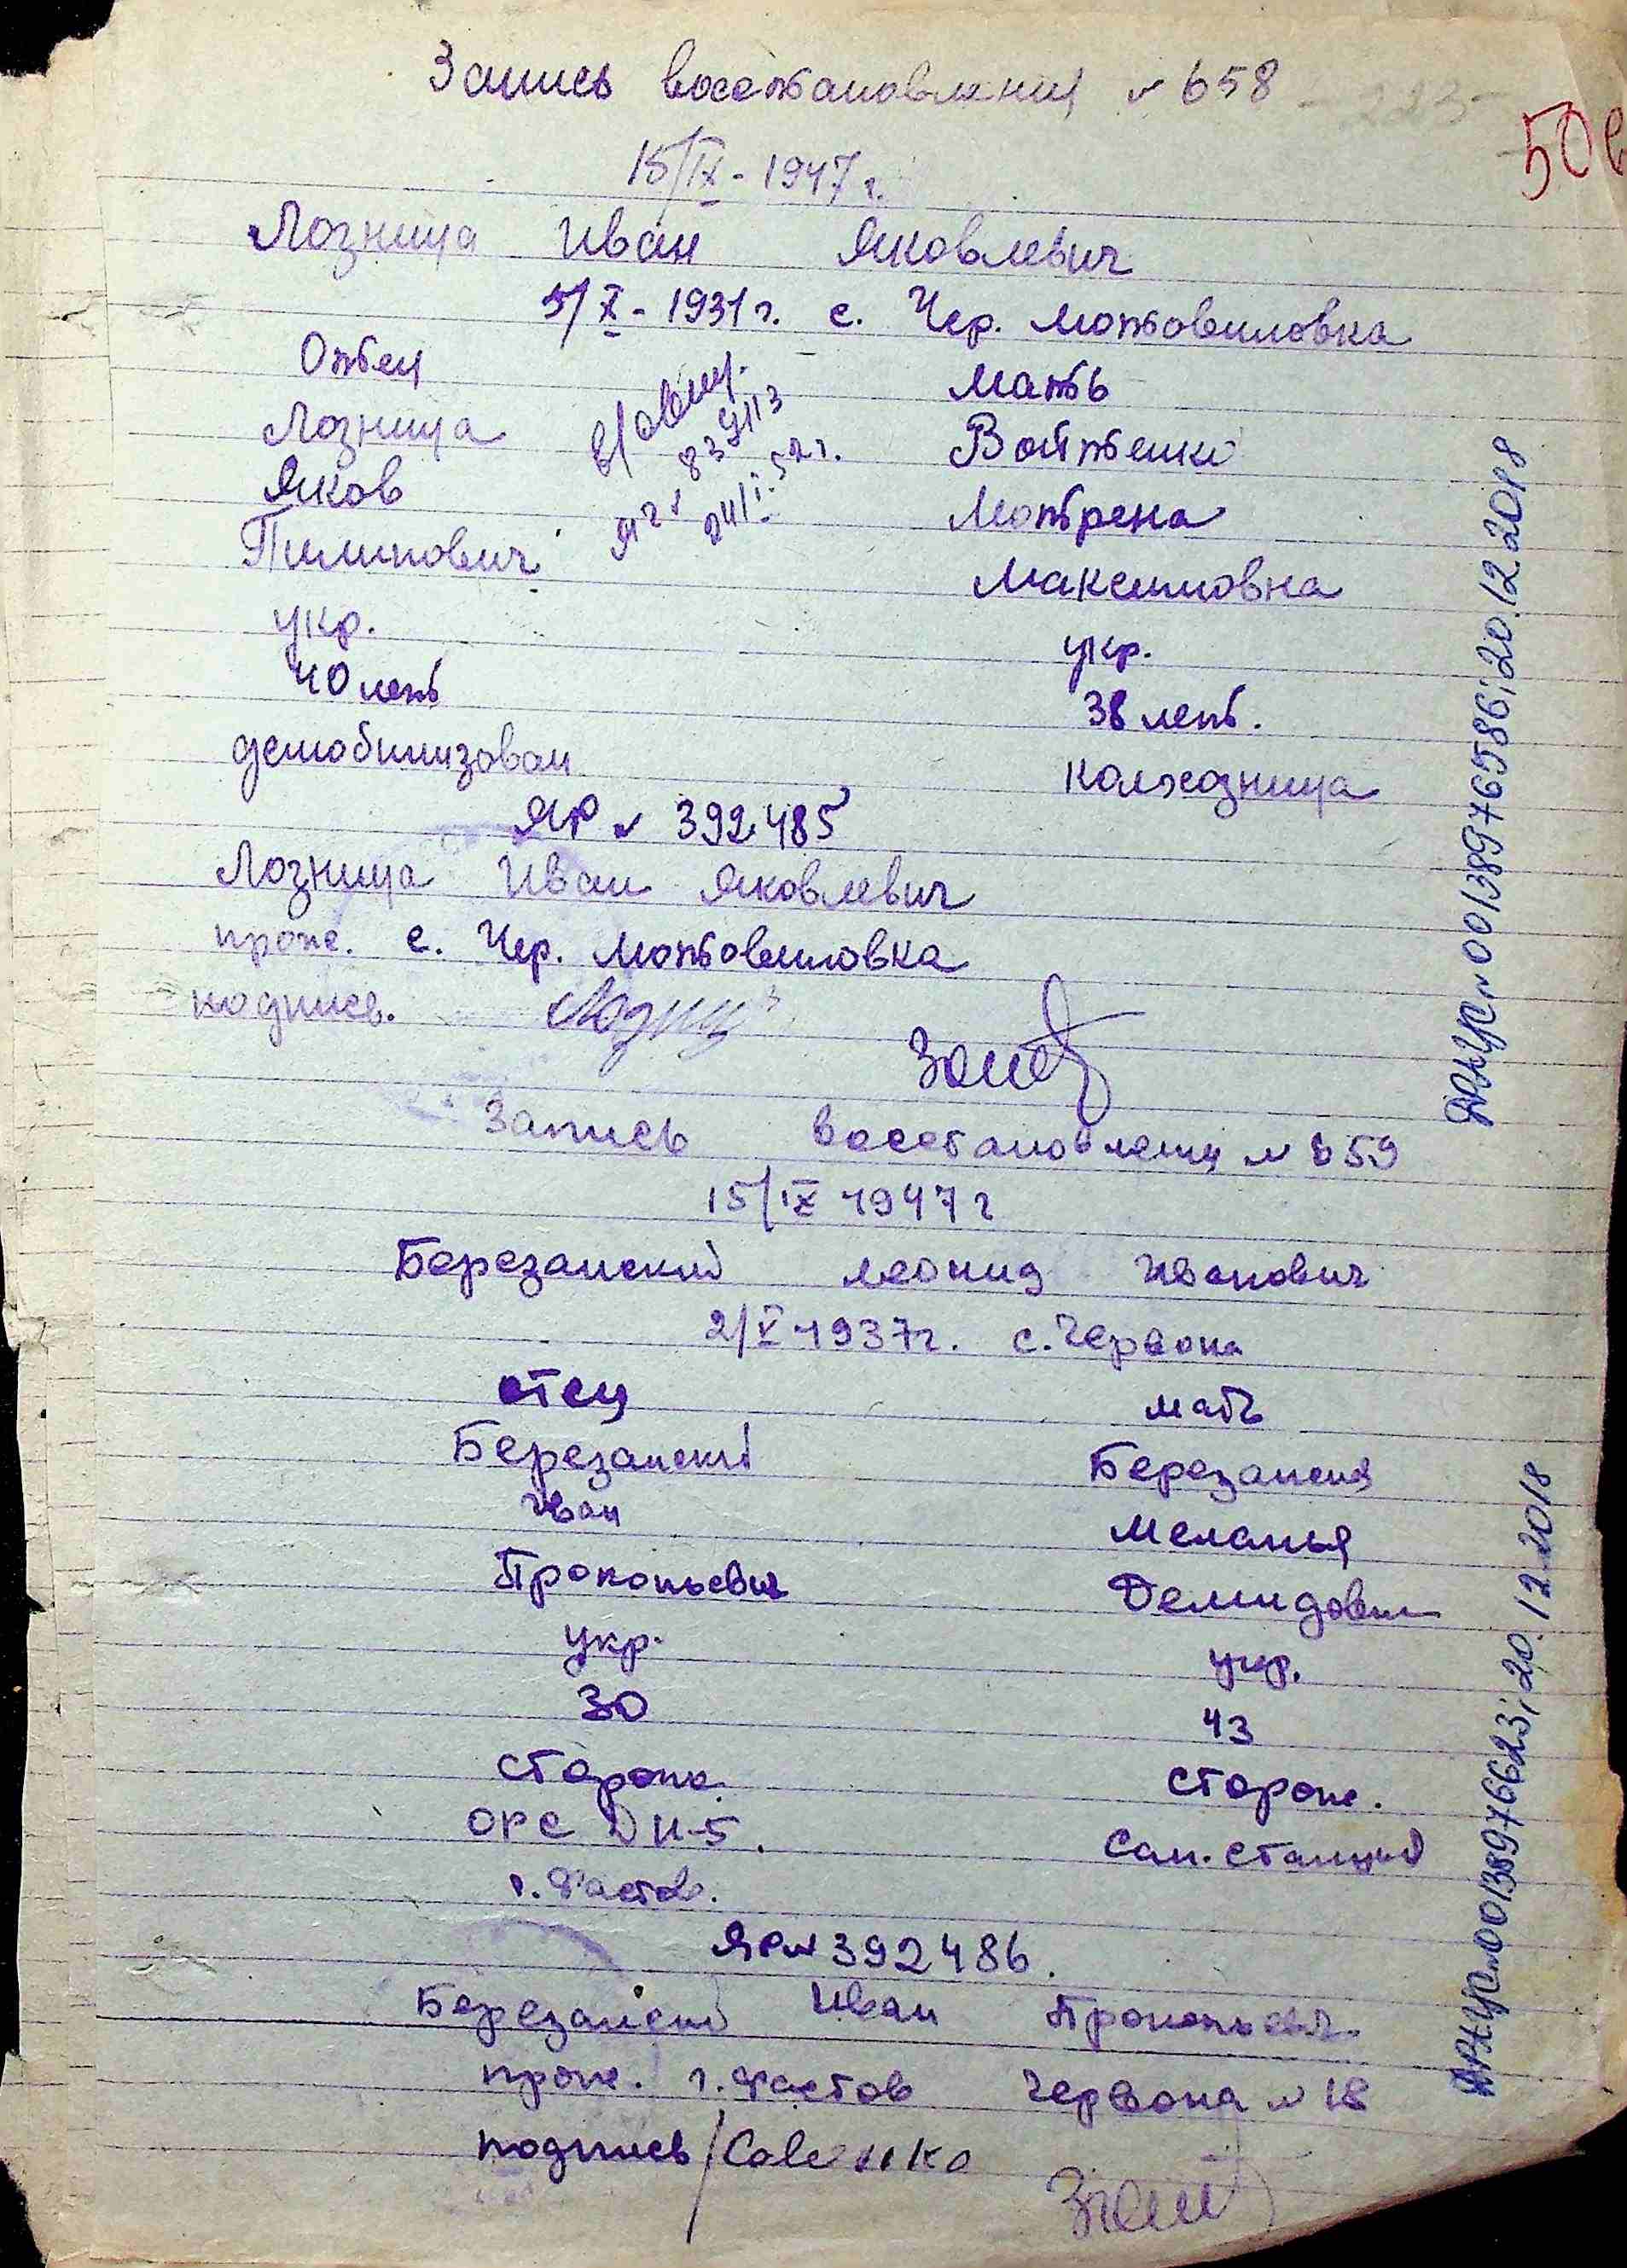 Запись восстановления № 658
- 223 -
15/IX - 1947 г.
Лозница Иван Яковлевич
5/X - 1931 г. с. Чер. Мотовиловка
Отец
Мать
Лозница
Войтенко
Яков
Мотрена
Пилипович
Максимовна
839113
24/I. 52 г.
укр.
укр.
40 лет
38 лет.
демобилизован
колхозница
ЯР № 392485
Лозница Иван Яковлевич
прож. с. Чер. Мотовиловка
подпись. Лозниц
Запись восстановления № 659
15/IX 1947 г
Березанский Леонид Иванович
2/V 1937 г. с. Червона
отец
мать
Березанский
Березанская
Иван
Меланья
Прокопьевич
Демидовна
укр.
укр.
30
43
сторож.
сторож.
ОРС ДН-5.
Сан. станций
г. Фастов.
ЯР № 392486.
Березанский Иван Прокопьевич
прож. г. Фастов Червона № 18
подпись
ДРАЦС № 00138976586; 20.12.2018
ДРАЦС № 00138976623; 20.12.2018